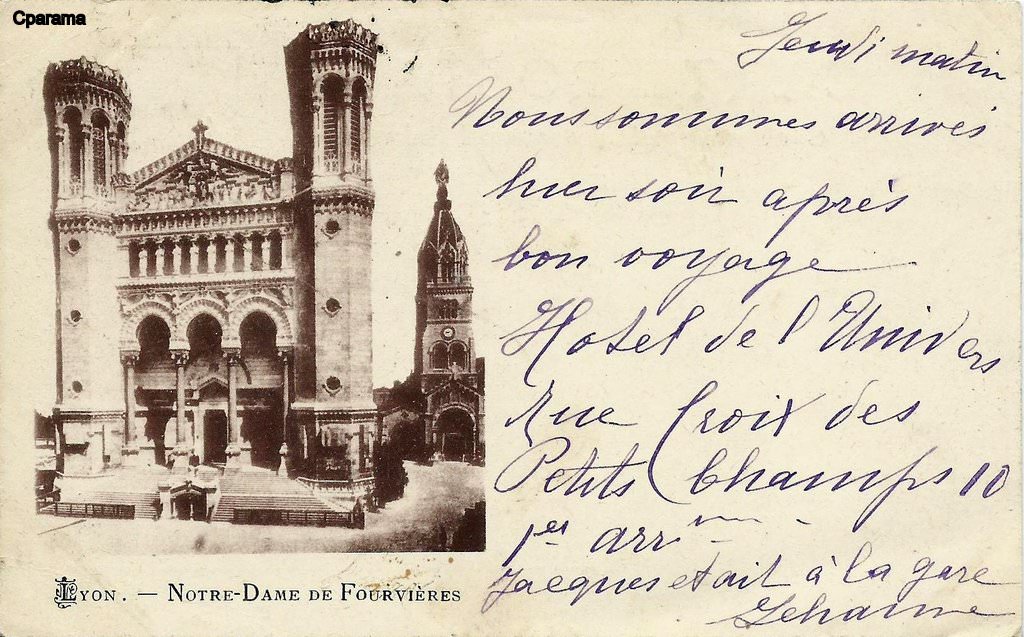 Cparama
Jeudi matin
Nous sommes arrivés
hier soir après
bon voyage
Hotel de l'Univers
Rue Croix des
Petits Champs 10
1er arrm
Jacques etait à la gare
LYON. — NOTRE-DAME DE FOURVIÈRES